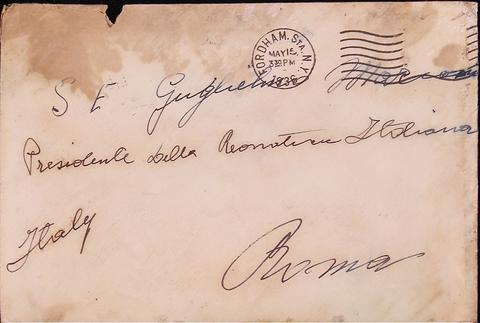 FORDHAM. STA. N.Y.
MAY 15
3 30 PM
S E Guglielmo Marconi
Presidente della Reonatica Italiana
Italy
Roma